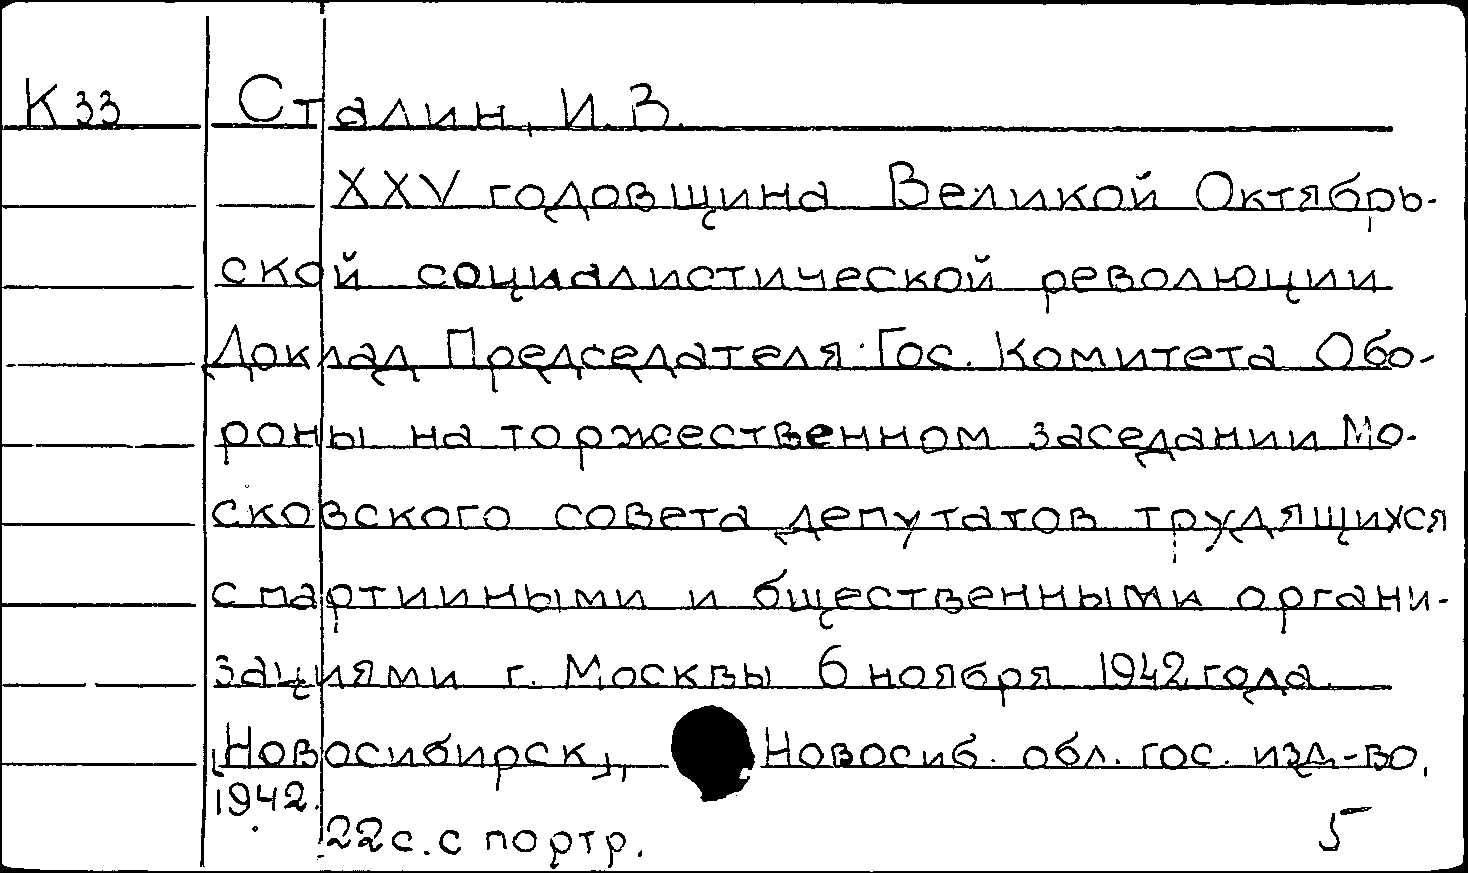 К 33 Сталин, И.В.
XXV годовщина Великой Октябрь-
ской социалистической революции
Доклад Председателя Гос. Комитета Обо-
роны на торжественном заседании Мо-
сковского совета депутатов трудящихся
с партииными и бщественными органи-
зациями г. Москвы 6 ноября 1942 года.
[Новосибирск], Новосиб. обл. гос. изд-во,
1942.
22 с. с портр. 5